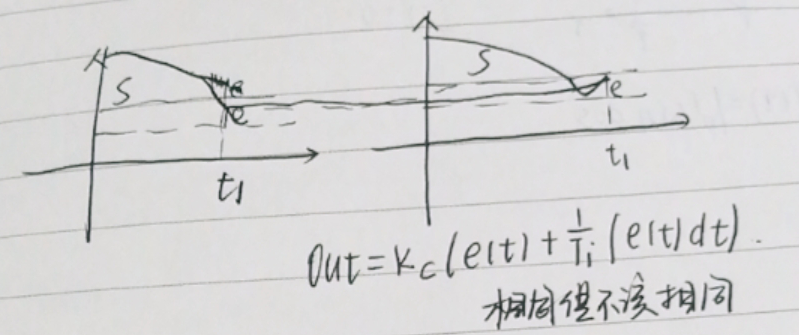 S
e
e
t1
S
e
t1
Out = Kc(e(t) + 1/Ti ∫e(t)dt).
相同但不该相同